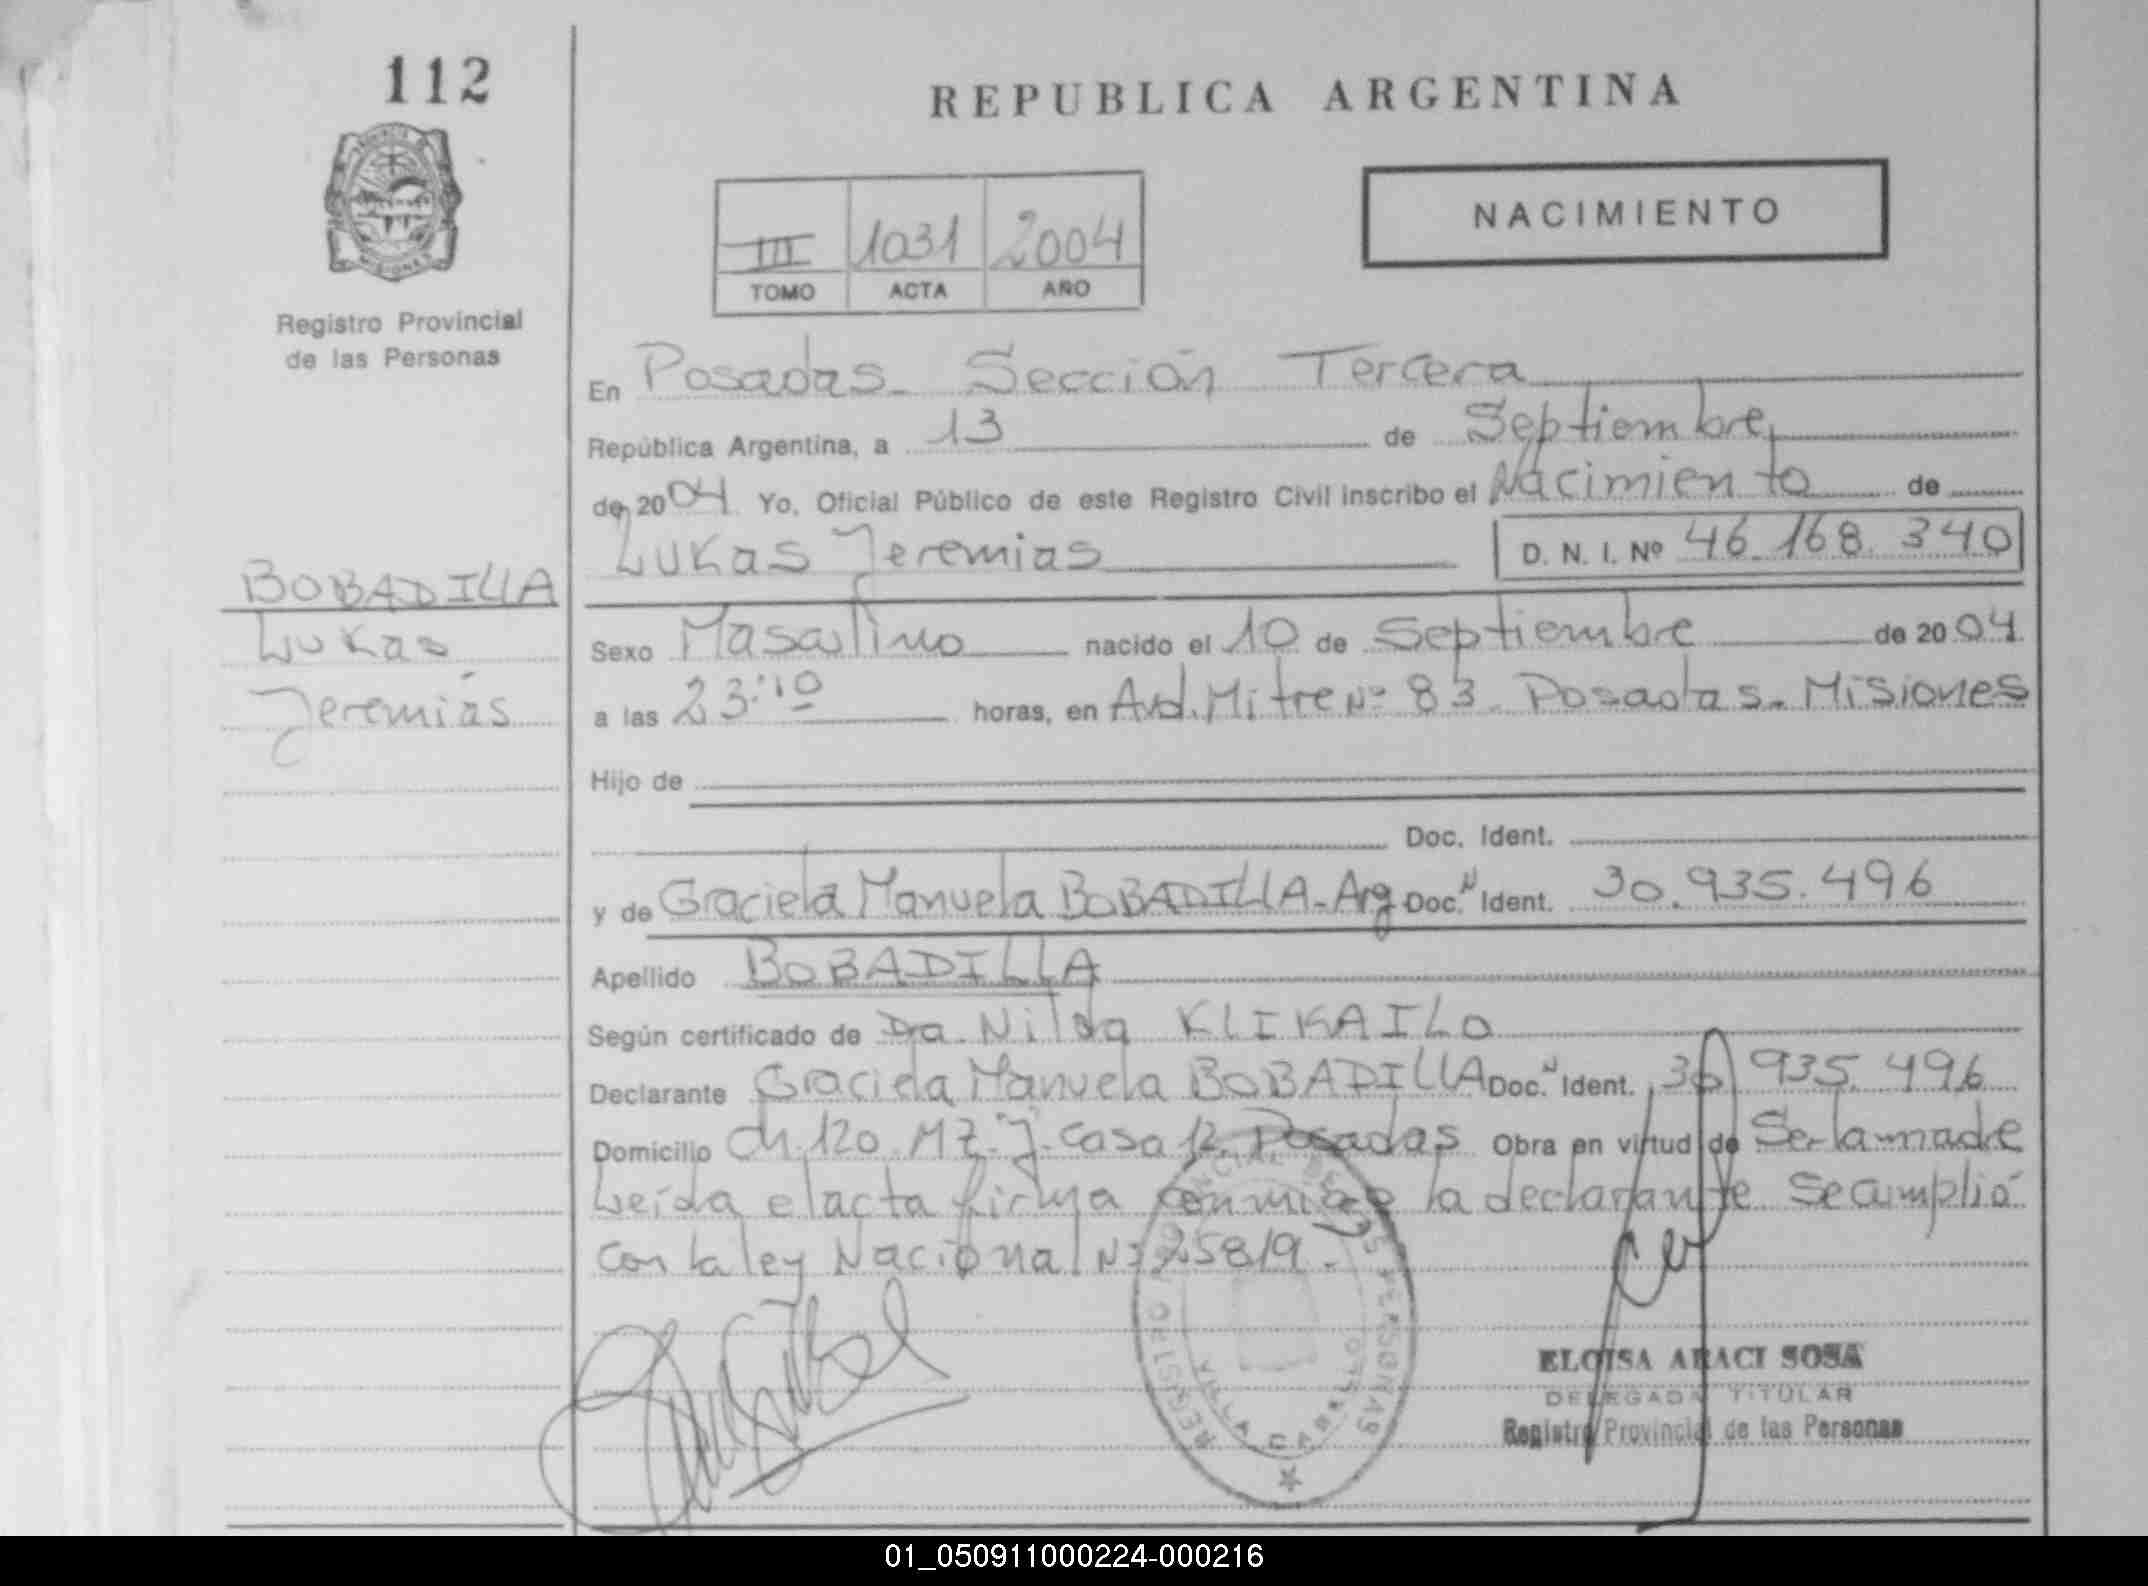 112
REPUBLICA ARGENTINA
NACIMIENTO
III 1031 2004
TOMO ACTA AÑO
Registro Provincial
de las Personas
En Posadas - Sección Tercera
República Argentina, a 13 de Septiembre
de 2004 Yo, Oficial Público de este Registro Civil inscribo el Nacimiento de
Lukas Jeremias D. N. I. Nº 46.168.340
BOBADILLA
Lukas
Jeremías
Sexo Masculino nacido el 10 de Septiembre de 2004
a las 23:10 horas, en Avd. Mitre Nº 83. Posadas - Misiones
Hijo de
Doc. Ident.
y de Graciela Manuela BOBADILLA - Arg Doc. N Ident. 30.935.496
Apellido BOBADILLA
Según certificado de Dra. Nilda KLIKAILO
Declarante Graciela Manuela BOBADILLA Doc. N Ident. 30 935.496
Domicilio Ch. 120. MZ. "J" - Casa 12. Posadas Obra en virtud de Ser la madre
Leída el acta firma conmigo la declarante Se cumplió
con la ley Nacional Nº 25819.-
REGISTRO PROVINCIAL DE LAS PERSONAS
VILLA CABELLO
ELOISA ARACI SOSA
DELEGADA TITULAR
Registro Provincial de las Personas
01_050911000224-000216